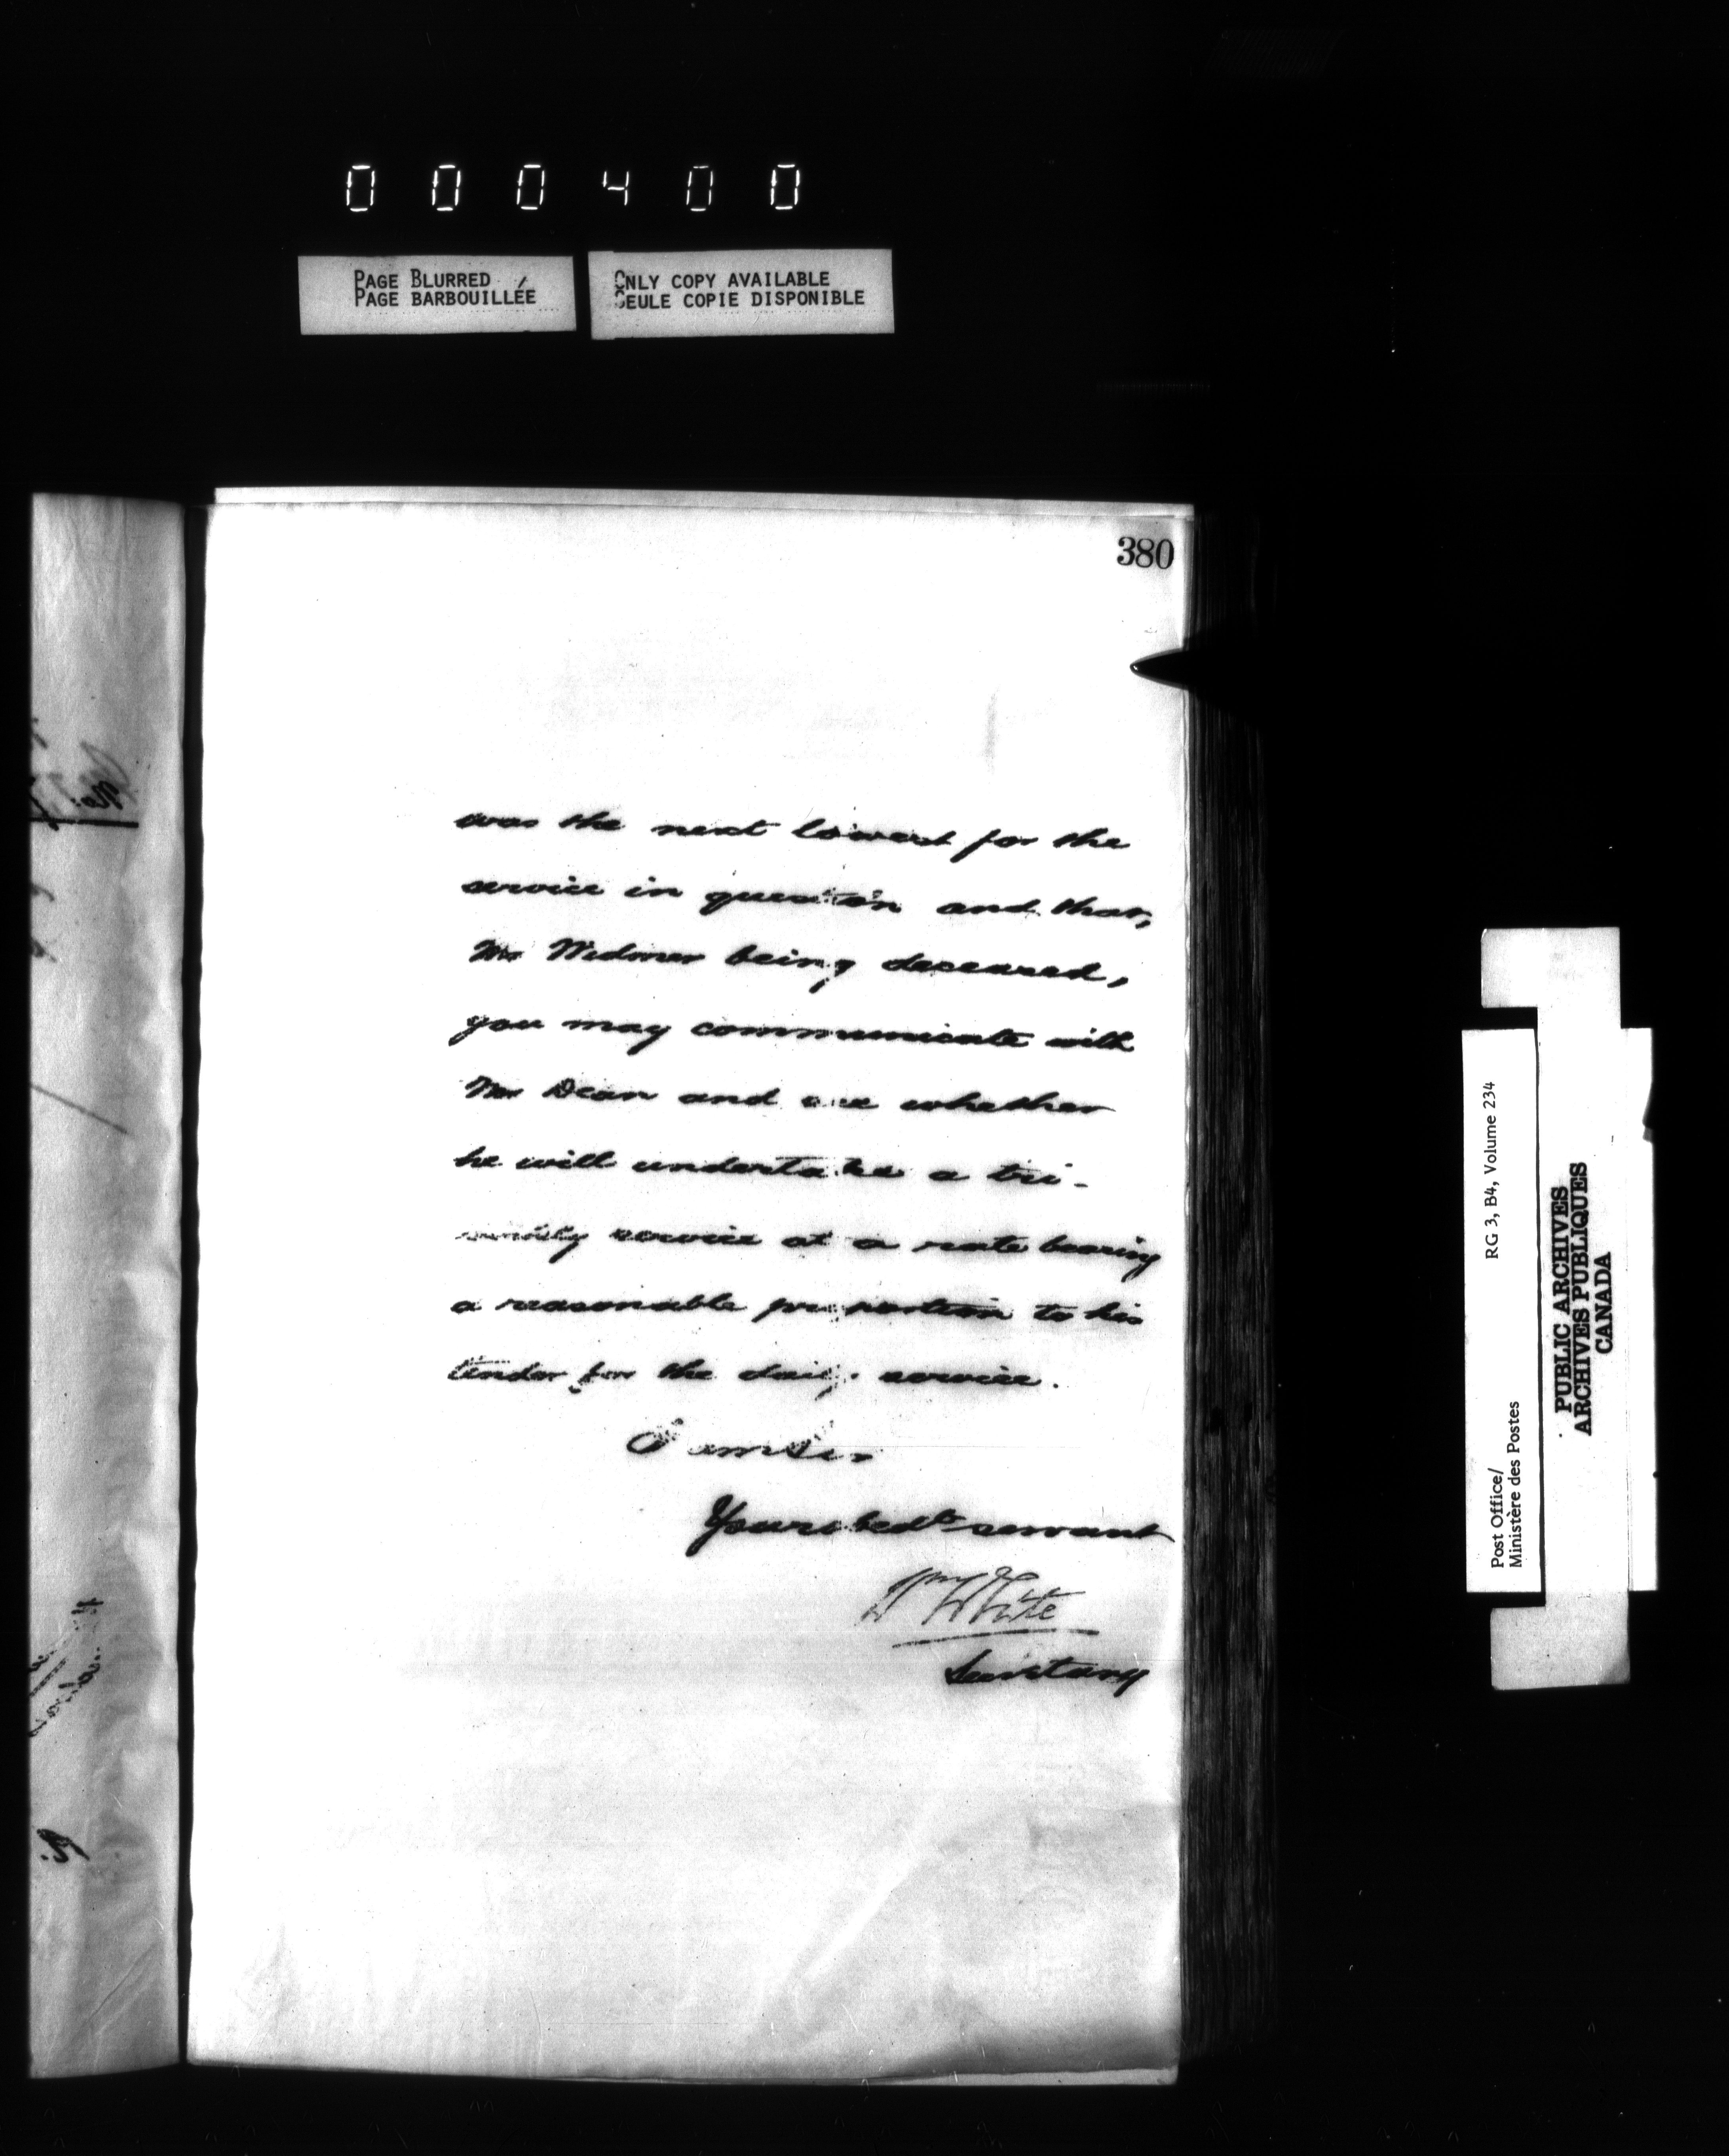 000400
PAGE BLURRED
PAGE BARBOUILLÉE
ONLY COPY AVAILABLE
SEULE COPIE DISPONIBLE
380
was the next lowest for the
service in question and that,
Mr Widmer being deceased,
you may communicate with
Mr Dean and see whether
he will undertake a tri-
weekly service at a rate bearing
a reasonable proportion to his
tender for the daily service.
I am Sir
Your obedt servant
Wm White
Secretary
Post Office/
Ministère des Postes
RG 3, B4, Volume 234
PUBLIC ARCHIVES
ARCHIVES PUBLIQUES
CANADA